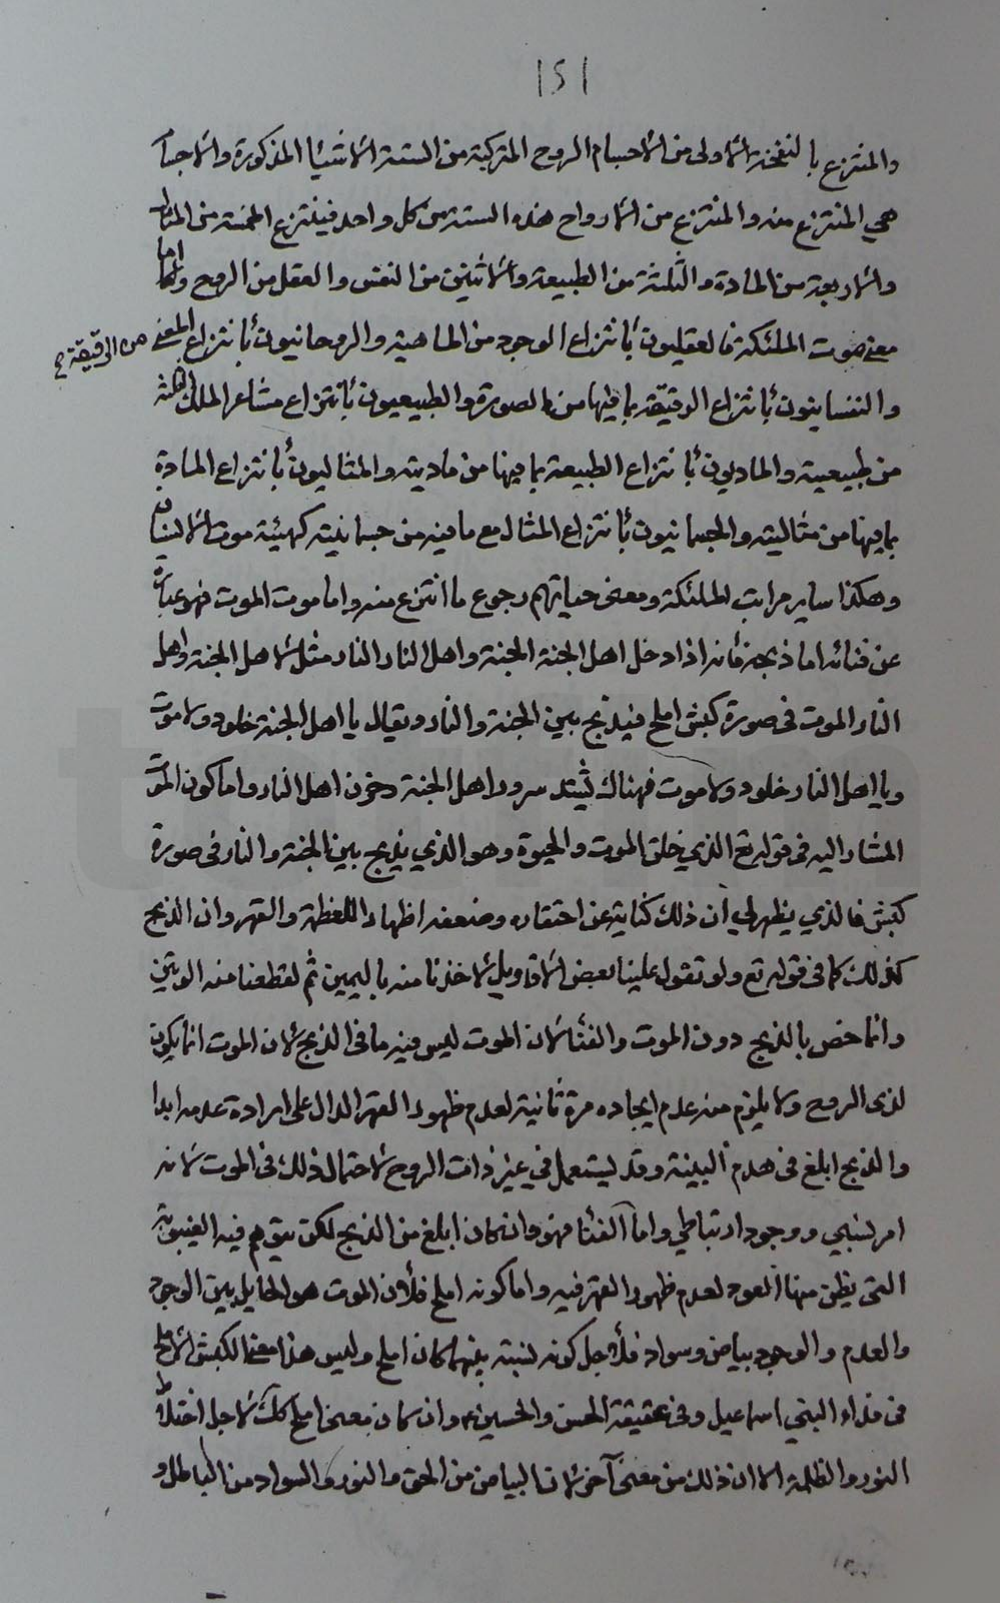 ١٥١
والمنتزع بالنفخة الاولى من الاجسام الروح المتركبة من الستة الاشياء المذكورة والاجسام
هي المنتزع منه والمنتزع من الارواح هذه الستة من كل واحد فينتزع الخمسة من المثال
والاربعة من المادة والثلثة من الطبيعة والاثنين من النفس والعقل من الروح واما
معنى موت الملئكة فالعقليون بانتزاع الوجود من الماهية والروحانيون بانتزاع المعنى من الرقيقة
والنفسانيون بانتزاع الرقيقة بما فيها من الصورة والطبيعيون بانتزاع مشاعر الملك الثلثة
من طبيعية والماديون بانتزاع الطبيعة بما فيها من مادية والمثاليون بانتزاع المادة
بما فيها من مثالية والجسمانيون بانتزاع المثال مع ما فيه من جسمانية كهيئة موت الانسان
وهكذا ساير مراتب الملئكة ومعنى حياتهم رجوع ما انتزع منه واما موت الموت فهو عبارة
عن فنائه اما ذبحه فانه اذا دخل اهل الجنة الجنة واهل النار النار مثل لاهل الجنة واهل
النار الموت في صورة كبش املح فيذبح بين الجنة والنار ويقال يا اهل الجنة خلود ولا موت
ويا اهل النار خلود ولا موت فهناك يشتد سرور اهل الجنة وحزن اهل النار واما كون الموت
المشار اليه في قوله تع الذي خلق الموت والحيوة وهو الذي يذبح بين الجنة والنار في صورة
كبش فالذي يظهر لي ان ذلك كناية عن احتقاره وضعفه اظهارا للعظمة والقهر وان الذبح
كذلك كما في قوله تع ولو تقول علينا بعض الاقاويل لاخذنا منه باليمين ثم لقطعنا منه الوتين
وانما خص بالذبح دون الموت والفنا لان الموت ليس فيه ما في الذبح لان الموت انما يكون
لذى الروح ولا يلزم منه عدم ايجاده مرة ثانية لعدم ظهور القهر الدال على ارادة عدمه ابدا
والذبح ابلغ في هدم البينة وقد يستعمل في غير ذات الروح لاحتمال ذلك في الموت لانه
امر نسبي ووجود ارتباطي واما الفنا فهو وان كان ابلغ من الذبح لكن يتوهم فيه الغيبوبة
التي يظن منها العود لعدم ظهور القهر فيه واما كونه املح فلان الموت هو الحايل بين الوجود
والعدم والوجود بياض وسواد فلاجل كونه نسبة بينهما كان املح وليس هذا معنى الكبش الاملح
في فداء النبي اسماعيل وفي عقيقة الحسن والحسين وان كان معنى املح كك لاجل اختلاط
النور والظلمة الا ان ذلك من معنى آخر لان البياض من الحق والنور والسواد من الباطل و